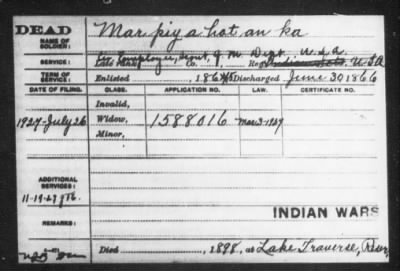 DEAD
NAME OF SOLDIER: Mar piy a hot an ka
SERVICE: Late Co. Reg't U.S.A.
TERM OF SERVICE: Enlisted , 186 Discharged June 30 1866
DATE OF FILING. CLASS. APPLICATION NO. LAW. CERTIFICATE NO.
Invalid,
1927-July 26 Widow, 1588016 Mar 3-1927
Minor,
ADDITIONAL SERVICES:
11-19-27
INDIAN WARS
REMARKS:
Died , 1898, at Lake Traverse,